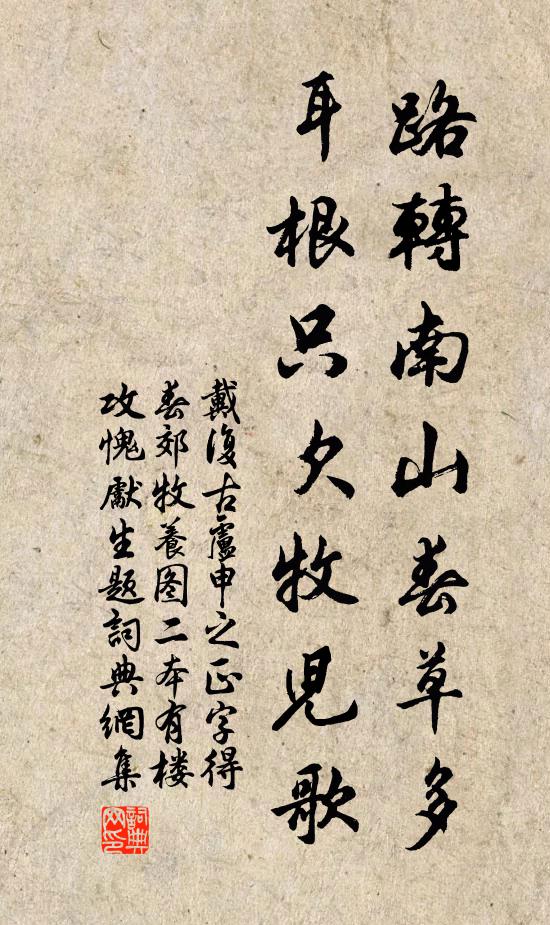 路轉南山春草多
耳根只欠牧児歌
戴復古盧申之正字得
春郊牧養图二本有楼
攻愧獻生題詞典網集
詞典网印